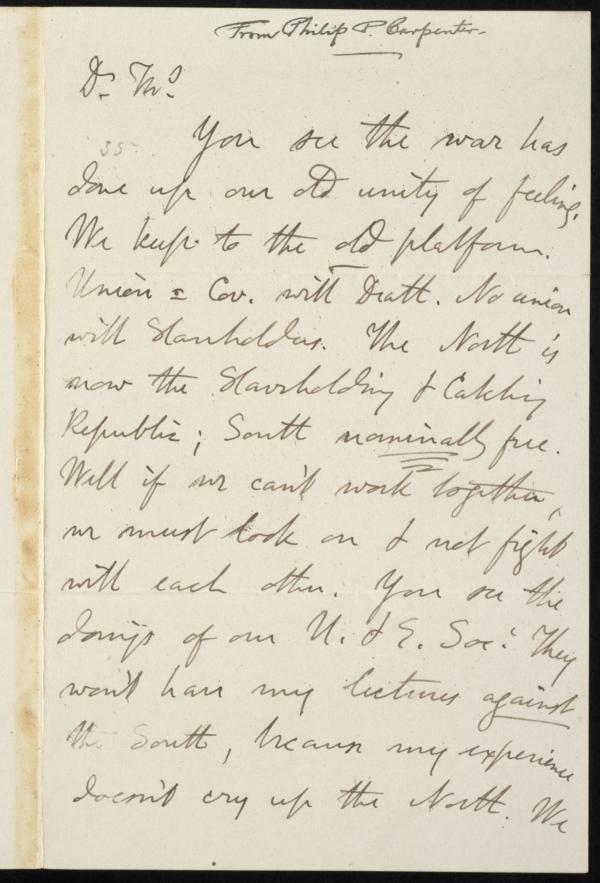 From Philip P. Carpenter.
Dr. Thos.
35
You see the war has
done up our old unity of feeling.
We keep to the old platform.
Union = Cov. with Death. No union
with Slaveholders. The North is
now the Slaveholding & Catching
Republic; South nominally free.
Well if we can't work together,
we must look on & not fight
with each other. You see the
doings of our U. & E. Soc: They
won't have my lectures against
the South, because my experience
doesn't cry up the North. We